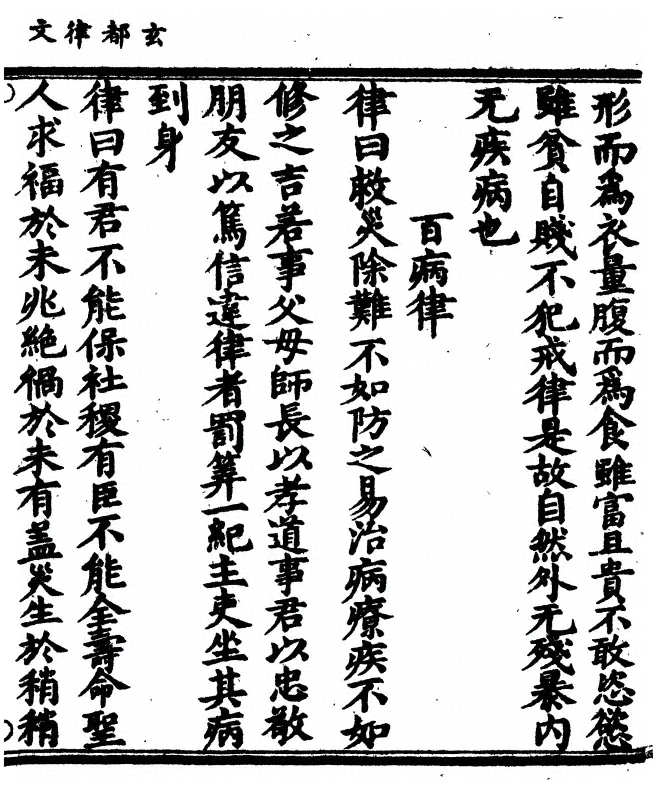 玄都律文
形而為衣量腹而為食雖富且貴不敢恣慾
雖貧自賤不犯戒律是故自然外无殘暴内
无疾病也
百病律
律曰救災除難不如防之易治病療疾不如
修之吉若事父母師長以孝道事君以忠敬
朋友以篤信違律者罰筭一紀主吏坐其病
到身
律曰有君不能保社稷有臣不能全壽命聖
人求福於未兆絶禍於未有盖災生於稍稍